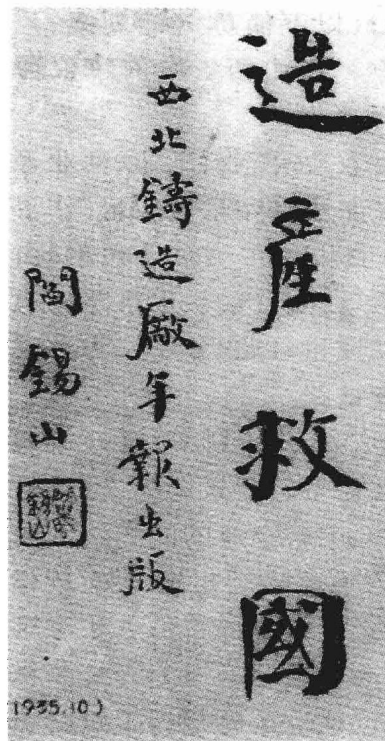 造產救國
西北鑄造廠年報出版
閻錫山
1935.10)